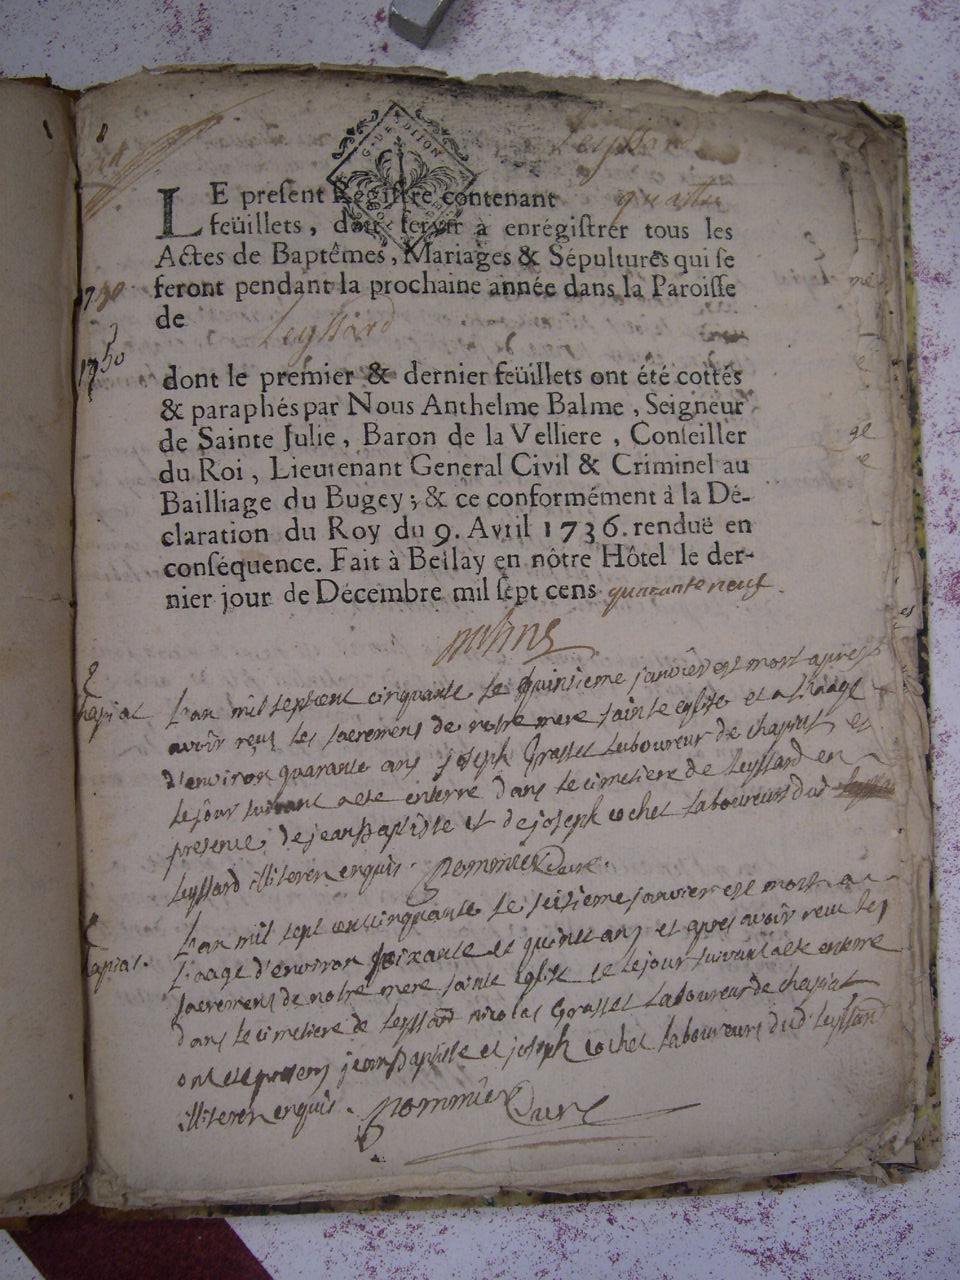 Leyssard
G. DE DIION
LE preſent Regiſtre contenant quatre
feüillets, doit ſervir à enrégiſtrer tous les
Actes de Baptêmes, Mariages & Sépultures qui ſe
feront pendant la prochaine année dans la Paroiſſe
de Leyssard
1750
1750
dont le premier & dernier feüillets ont été cottés
& paraphés par Nous Anthelme Balme, Seigneur
de Sainte Julie, Baron de la Velliere, Conſeiller
du Roi, Lieutenant General Civil & Criminel au
Bailliage du Bugey; & ce conformément à la Dé-
claration du Roy du 9. Avril 1736. renduë en
conſéquence. Fait à Bellay en nôtre Hôtel le der-
nier jour de Décembre mil ſept cens quarante neuf
L'an mil sept cent cinquante le quinsieme janvier est mort apres
avoir reçu les sacremens de notre mere sainte eglise et a l'aage
d'environ quarante ans joseph Grasset Laboureur de chapiat et
le jour suivant a ete enterre dans le cimetiere de Leyssard en
presence de jean Baptiste et de joseph cochet Laboureurs dud
Leyssard illiteres enquis. pommier Cure.
L'an mil sept cent cinquante le seisieme janvier est mort a
l'aage d'environ soixante et quinse ans et apres avoir reçu les
sacremens de notre mere sainte eglise et le jour suivant a ete enterre
dans le cimetiere de Leyssard nicolas Grasset Laboureur de chapiat
ont ete presens jean Baptiste et joseph cochet Laboureurs dud Leyssard
illiteres enquis. pommier Cure